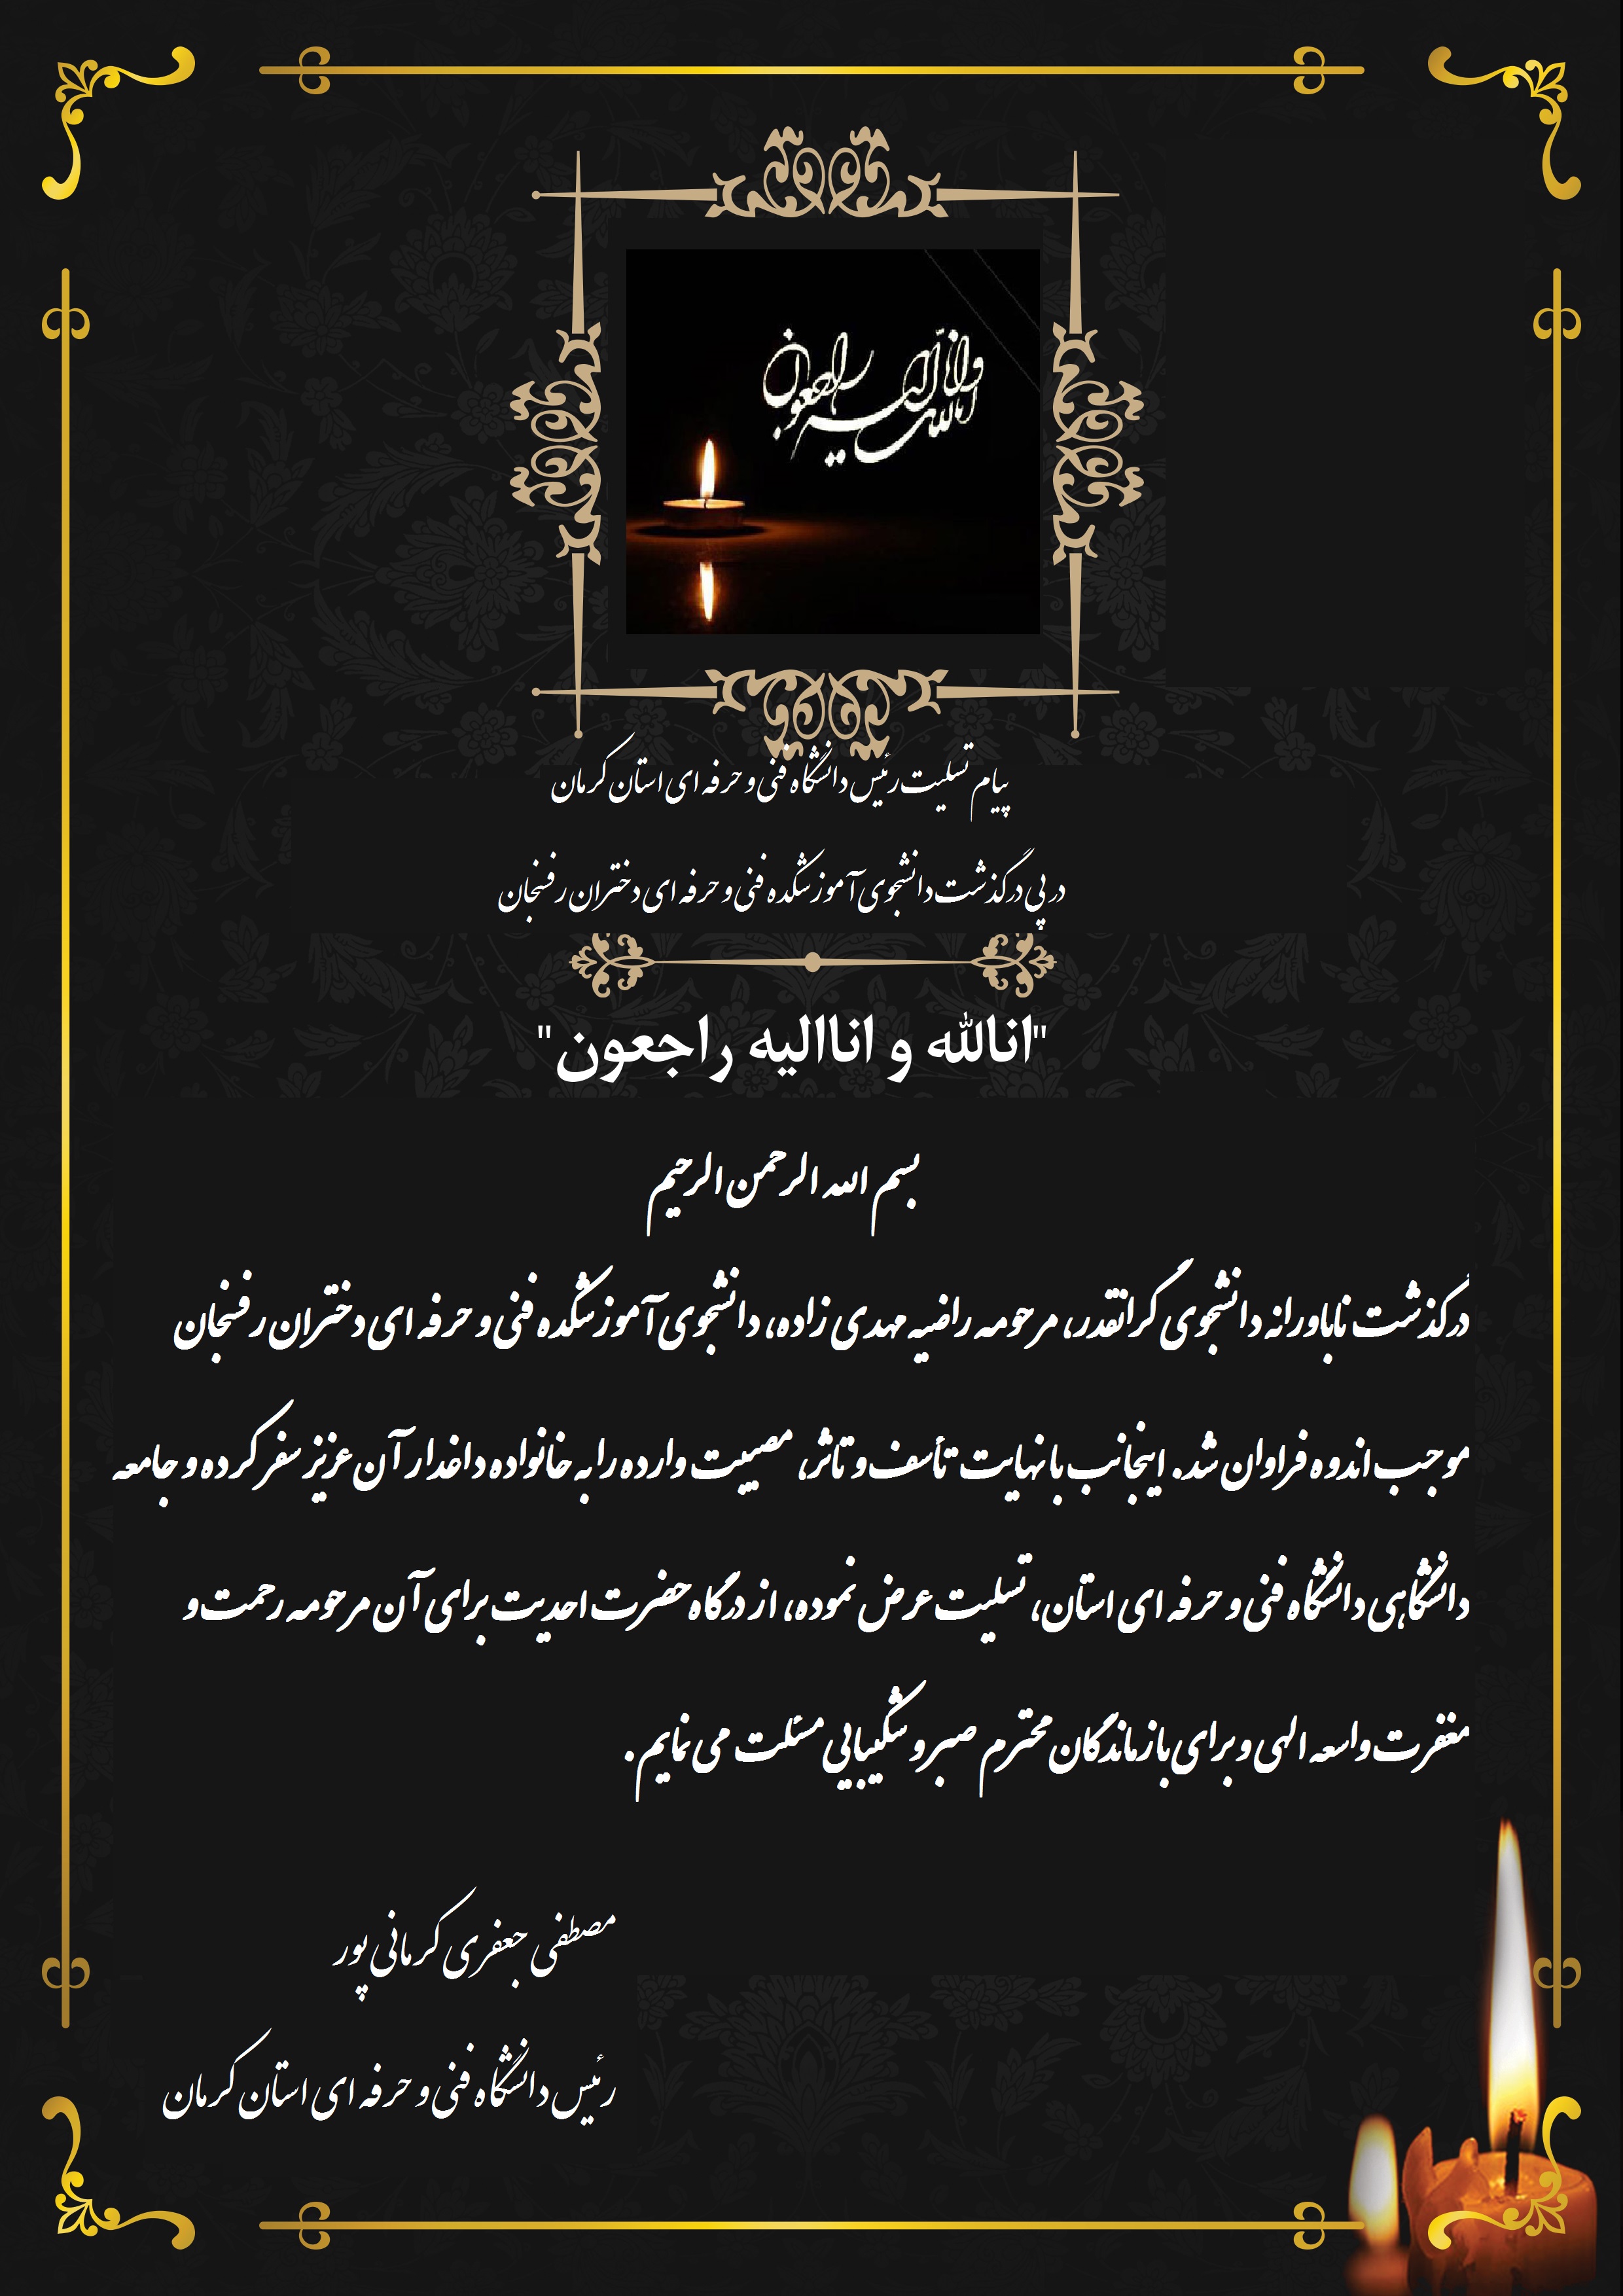 انا لله و انا الیه راجعون
پیام تسلیت رئیس دانشگاه فنی و حرفه ای استان کرمان
در پی درگذشت دانشجوی آموزشکده فنی و حرفه ای دختران رفسنجان
"انالله و اناالیه راجعون"
بسم الله الرحمن الرحیم
درگذشت ناباورانه دانشجوی گرانقدر، مرحومه راضیه مهدی زاده، دانشجوی آموزشکده فنی و حرفه ای دختران رفسنجان
موجب اندوه فراوان شد. اینجانب با نهایت تأسف و تاثر، مصیبت وارده را به خانواده داغدار آن عزیز سفر کرده و جامعه
دانشگاهی دانشگاه فنی و حرفه ای استان، تسلیت عرض نموده، از درگاه حضرت احدیت برای آن مرحومه رحمت و
مغفرت واسعه الهی و برای بازماندگان محترم صبر و شکیبایی مسئلت می نمایم.
مصطفی جعفری کرمانی پور
رئیس دانشگاه فنی و حرفه ای استان کرمان